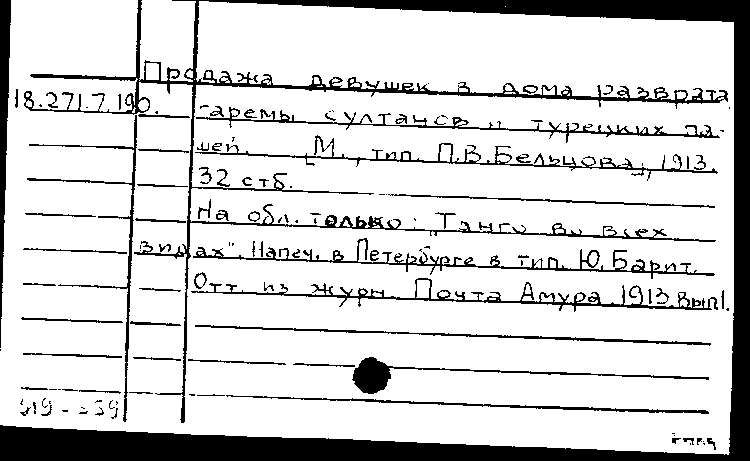 Продажа девушек в дома разврата
18.271.7.190. гаремы султанов и турецких па-
шей. [М., тип. П.В.Бельцова], 1913.
32 стб.
На обл. только: "Танго во всех
видах". Напеч. в Петербурге в тип. Ю. Барит.
Отт. из журн. Почта Амура. 1913. вып1.